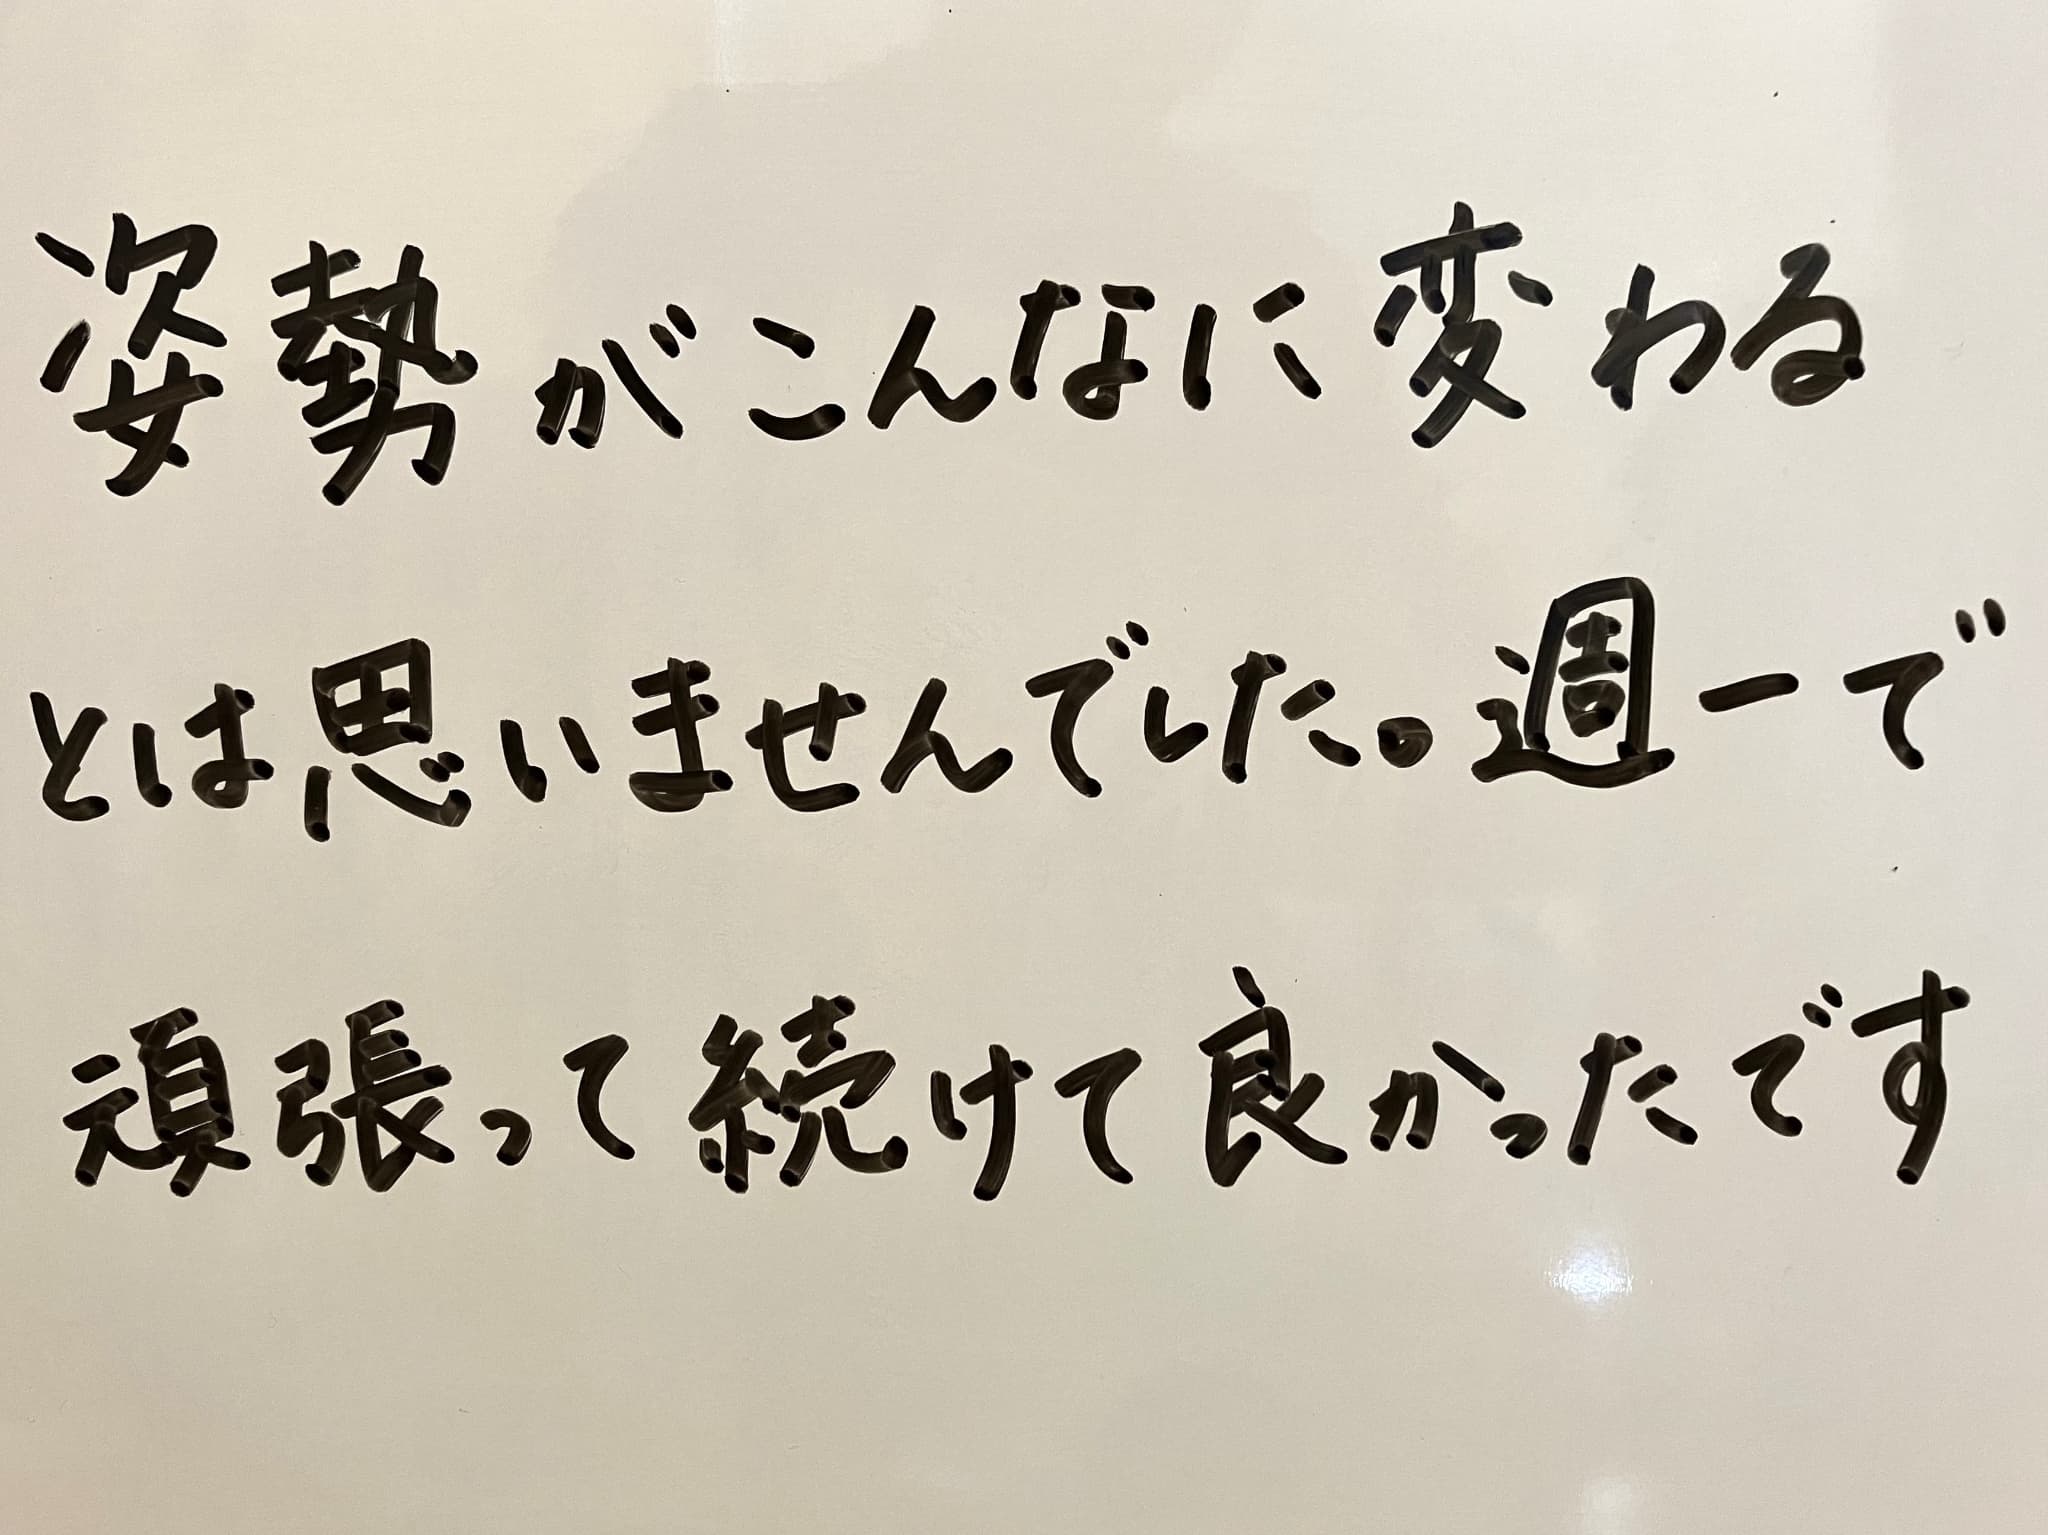 姿勢がこんなに変わる
とは思いませんでした。週一で
頑張って続けて良かったです